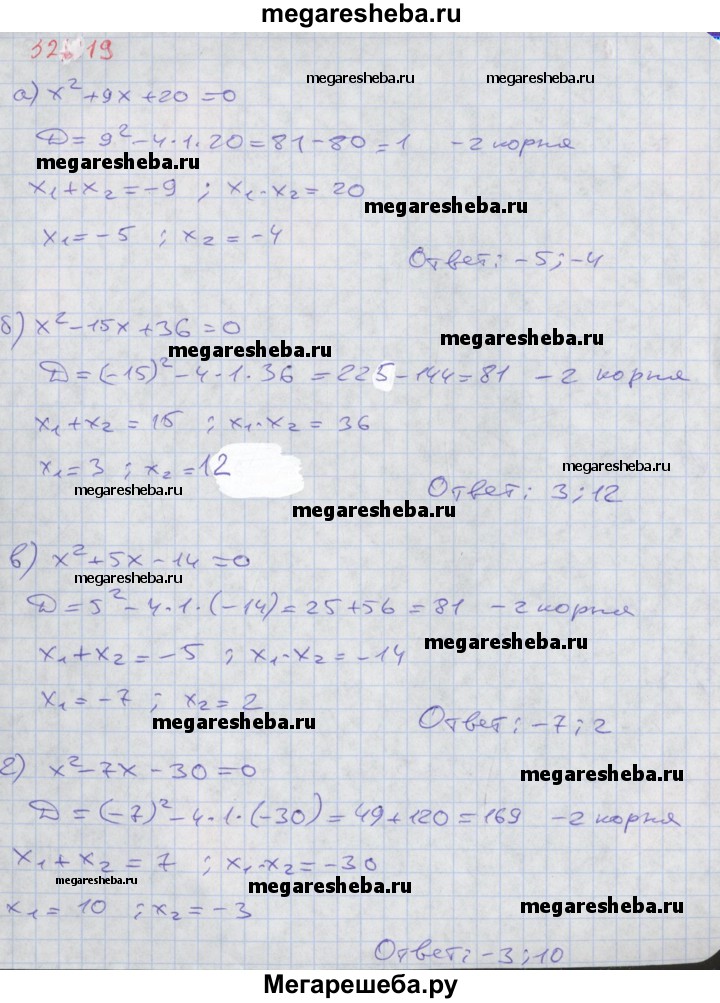 megaresheba.ru
32.19
megaresheba.ru megaresheba.ru
а) x² + 9x + 20 = 0
D = 9² - 4·1·20 = 81 - 80 = 1 - 2 корня
megaresheba.ru
x₁ + x₂ = -9 ; x₁·x₂ = 20
megaresheba.ru
x₁ = -5 ; x₂ = -4
Ответ: -5; -4
б) x² - 15x + 36 = 0
megaresheba.ru
megaresheba.ru
D = (-15)² - 4·1·36 = 225 - 144 = 81 - 2 корня
x₁ + x₂ = 15 ; x₁·x₂ = 36
x₁ = 3 ; x₂ = 12
megaresheba.ru
megaresheba.ru
Ответ: 3; 12
megaresheba.ru
в) x² + 5x - 14 = 0
megaresheba.ru
D = 5² - 4·1·(-14) = 25 + 56 = 81 - 2 корня
megaresheba.ru
x₁ + x₂ = -5 ; x₁·x₂ = -14
x₁ = -7 ; x₂ = 2
megaresheba.ru
Ответ: -7; 2
г) x² - 7x - 30 = 0
megaresheba.ru
D = (-7)² - 4·1·(-30) = 49 + 120 = 169 - 2 корня
x₁ + x₂ = 7 ; x₁·x₂ = -30
megaresheba.ru
megaresheba.ru
x₁ = 10 ; x₂ = -3
megaresheba.ru
Ответ: -3; 10
Мегарешеба.ру